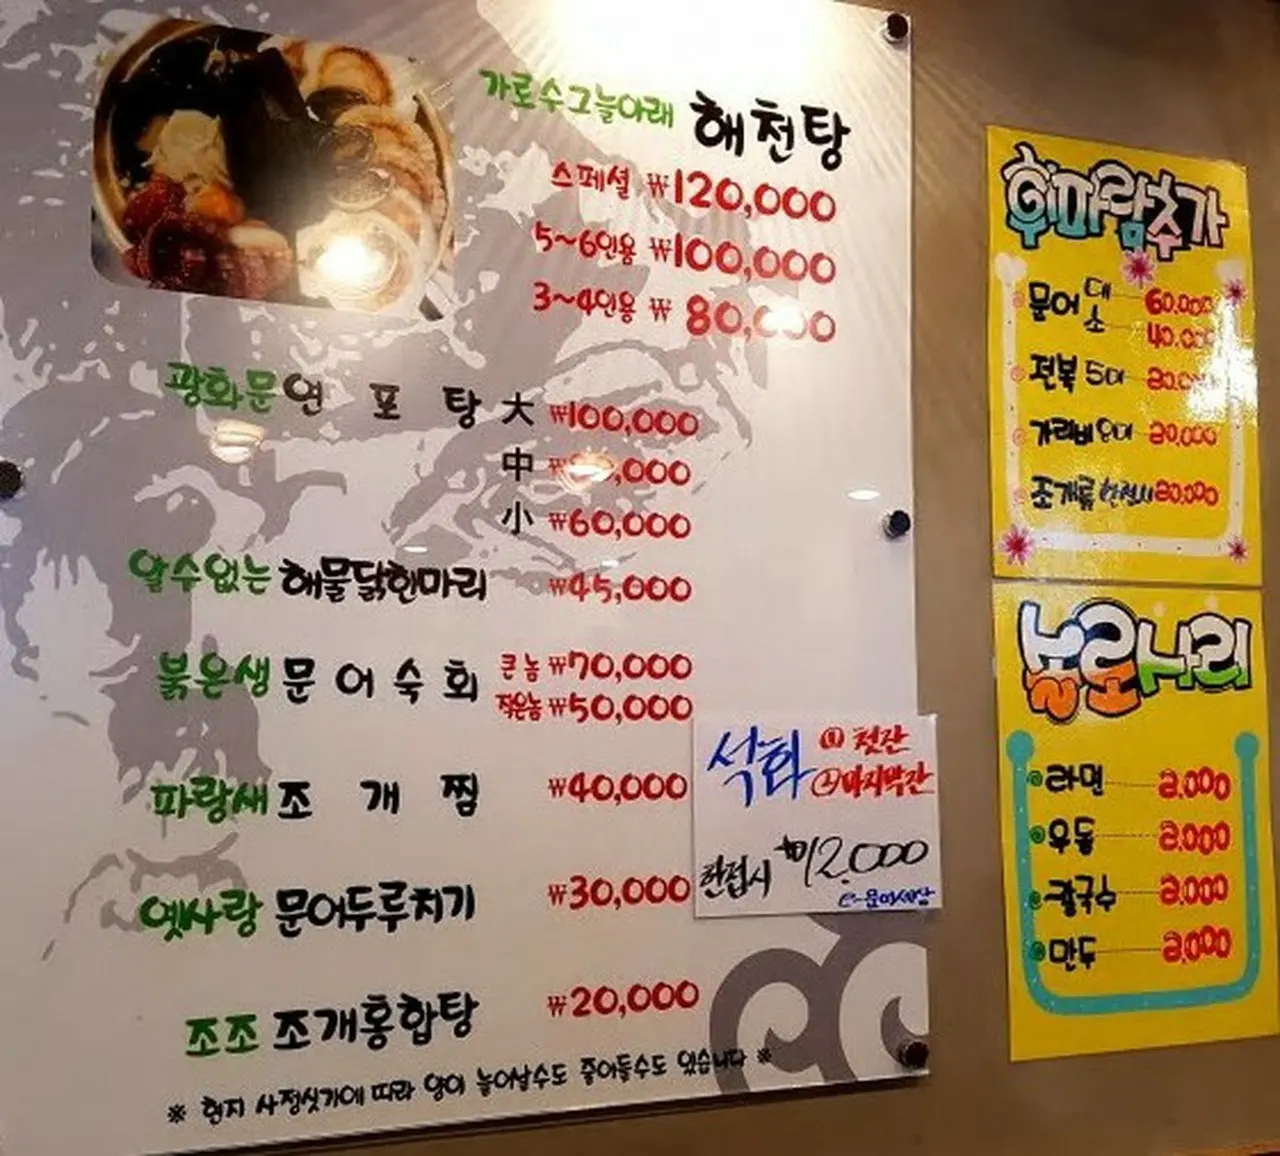 가로수그늘아래 해천탕
스페셜 ₩120,000
5~6인용 ₩100,000
3~4인용 ₩ 80,000
광화문연포탕 大 ₩100,000
中 ₩ ,000
小 ₩60,000
알수없는 해물닭한마리 ₩45,000
붉은생 문어숙회 큰놈 ₩70,000
작은놈 ₩50,000
파랑새 조개찜 ₩40,000
옛사랑 문어두루치기 ₩30,000
조조 조개홍합탕 ₩20,000
※ 현지 사정싯가에 따라 양이 늘어날수도 줄어들수도 있습니다 ※
석화 ① 첫잔
② 마지막잔
한접시 ₩12,000
e-문어세상
휘파람추가
문어 대 60,000
소 40,000
전복 5미 20,000
가리비 20,000
조개류 한접시 20,000
솔로사리
라면 2,000
우동 2,000
칼국수 2,000
만두 2,000